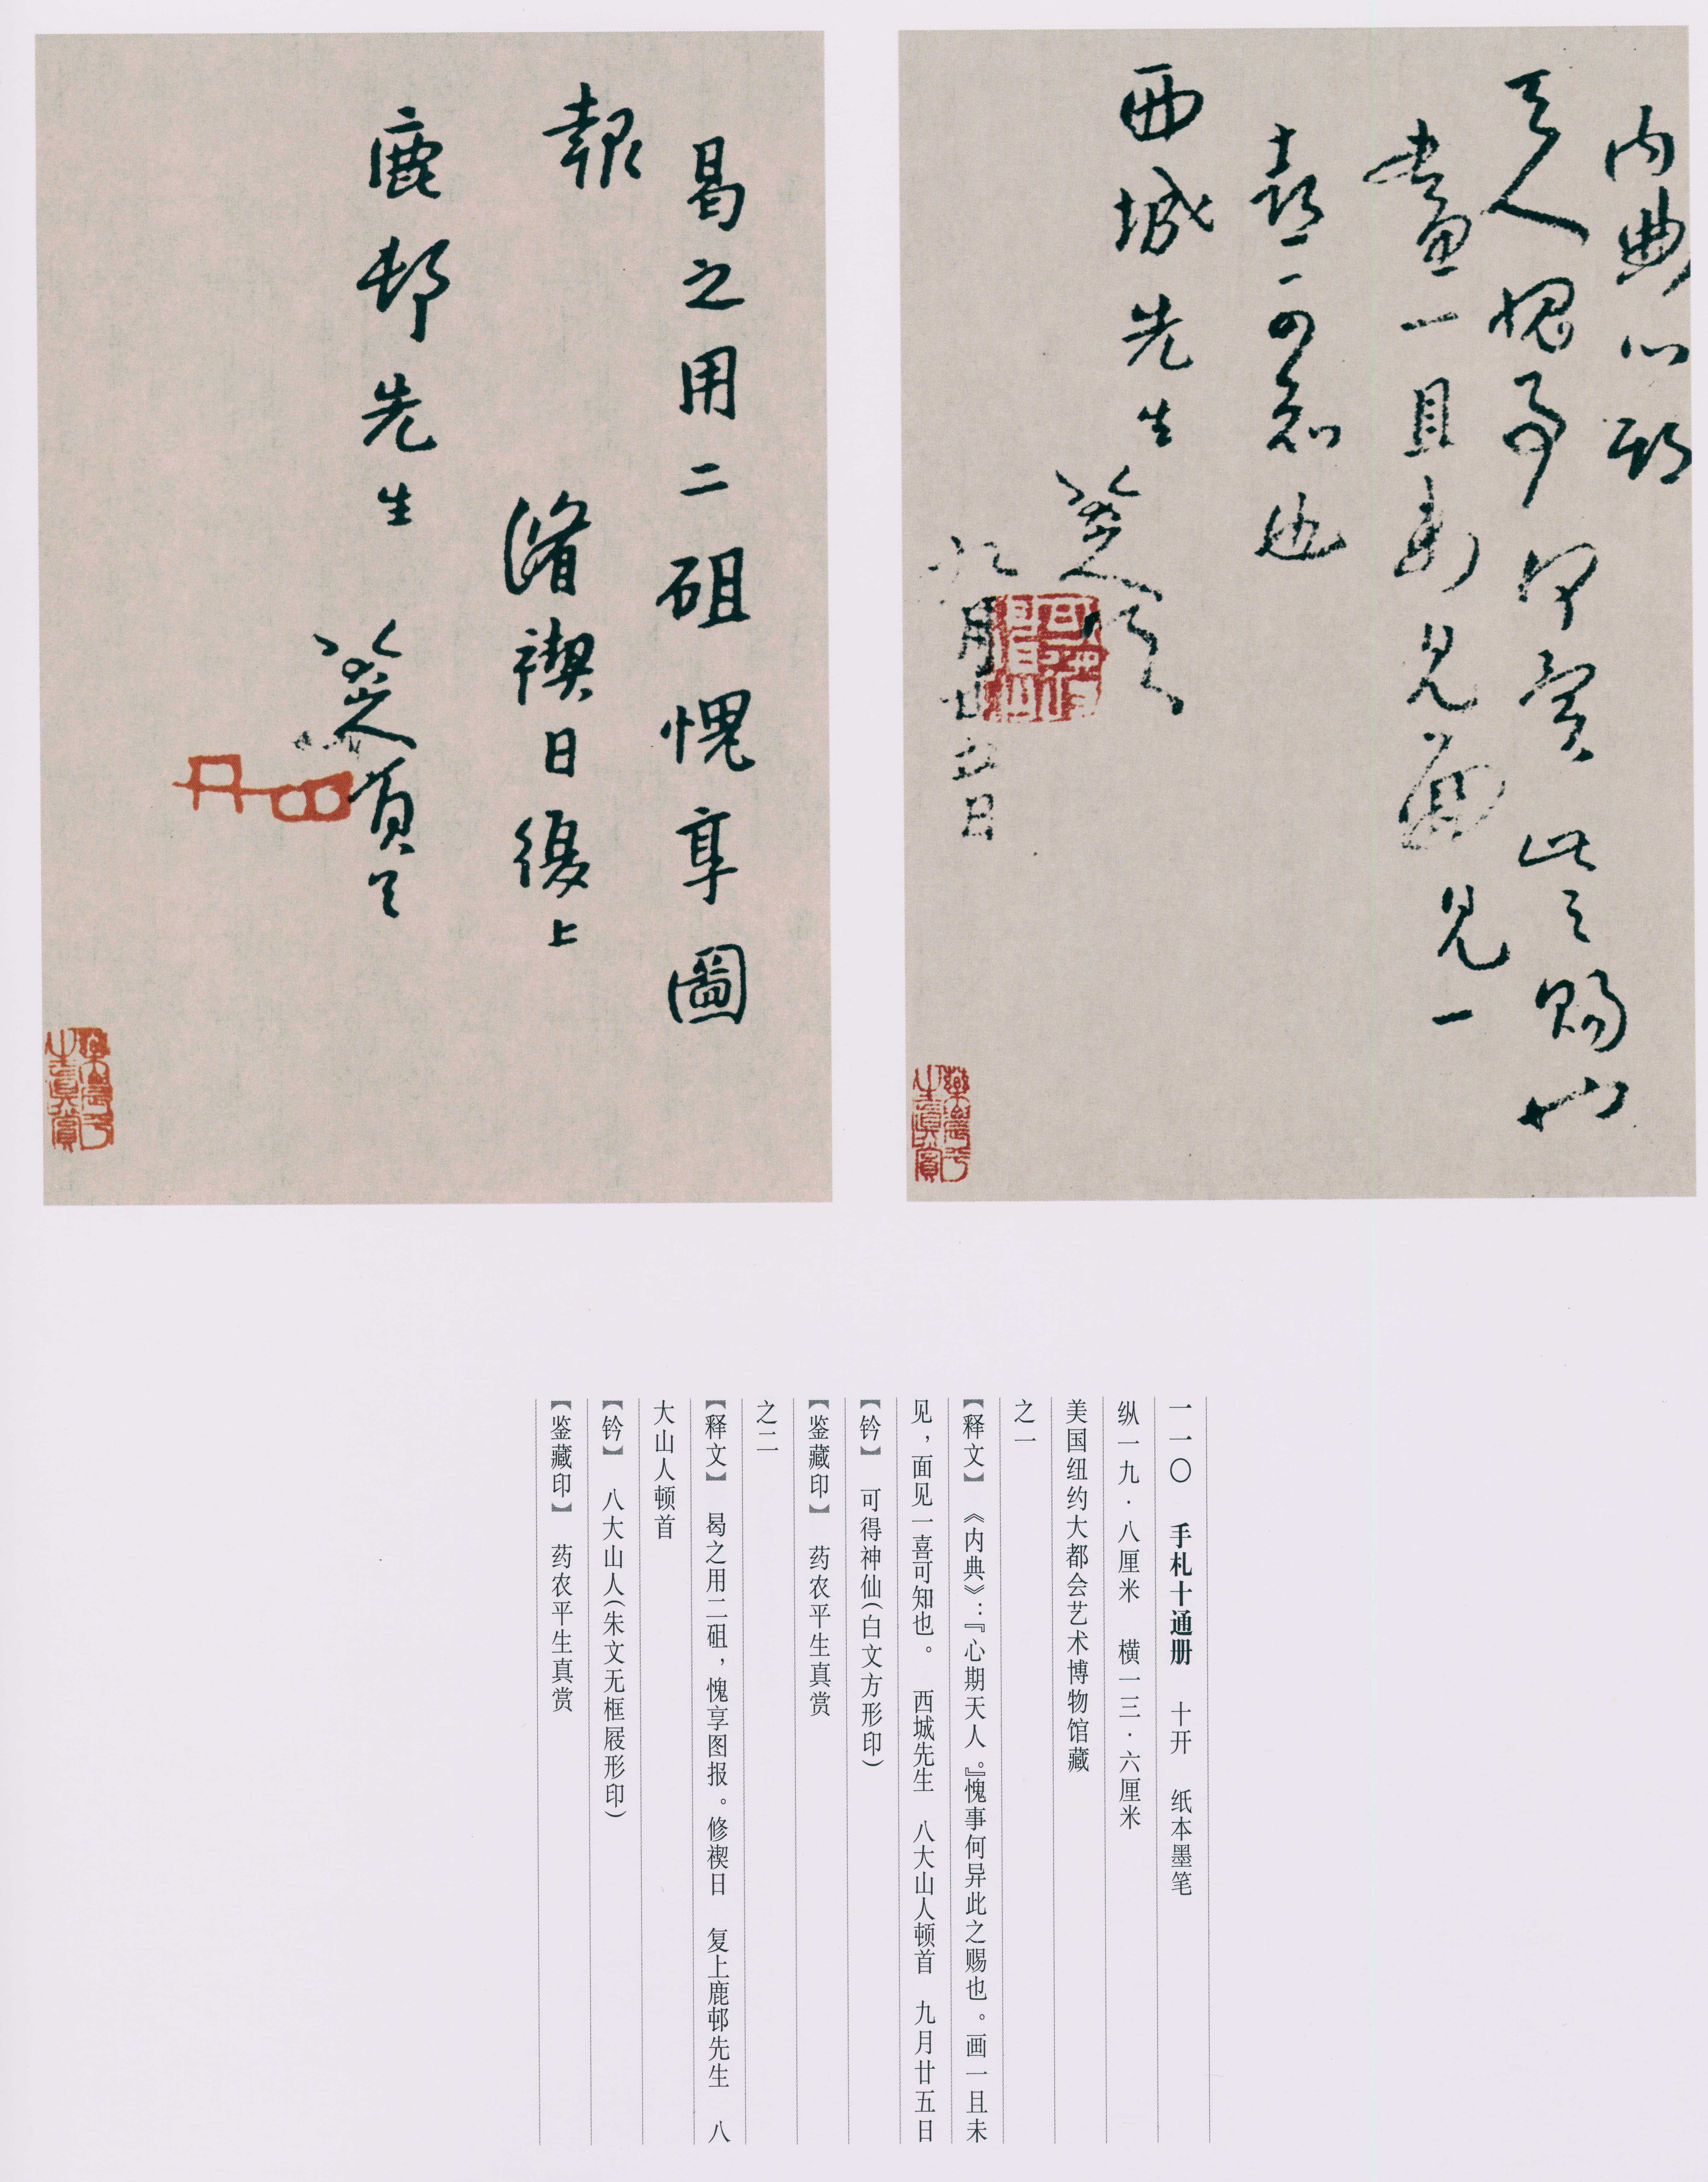 內典心期
天人愧事何異此之賜也
畫一且未見面見一
喜可知也
西城先生 八大山人頓首
九月廿五日
可得神仙
藥農平生真賞
曷之用二砠愧享圖
報 脩禊日復上
鹿邨先生 八大山人頓首
八大山人
藥農平生真賞
一一〇 手札十通册 十开 纸本墨笔
纵一九·八厘米 横一三·六厘米
美国纽约大都会艺术博物馆藏
之一
【释文】 《内典》：『心期天人。』愧事何异此之赐也。画一且未
见，面见一喜可知也。 西城先生 八大山人顿首 九月廿五日
【钤】 可得神仙（白文方形印）
【鉴藏印】 药农平生真赏
之二
【释文】 曷之用二砠，愧享图报。修禊日 复上鹿邨先生 八
大山人顿首
【钤】 八大山人（朱文无框屐形印）
【鉴藏印】 药农平生真赏